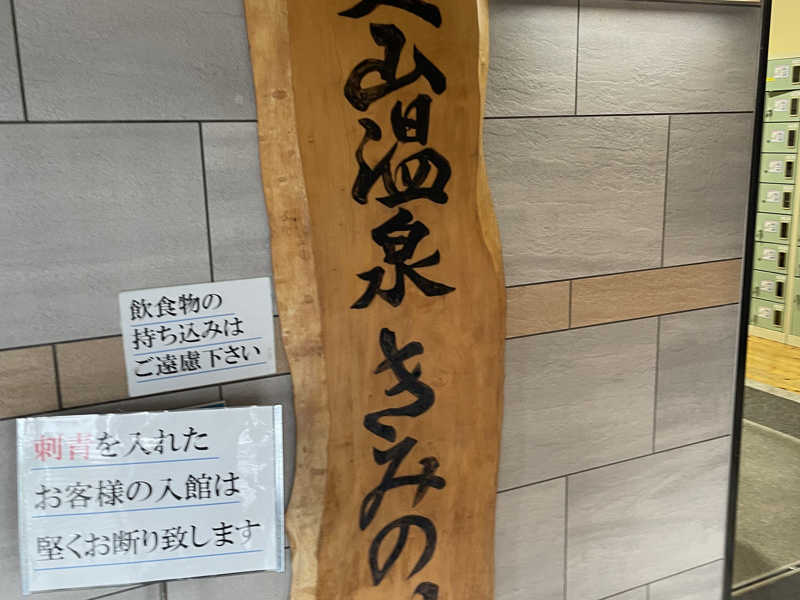 山温泉 きみの
飲食物の
持ち込みは
ご遠慮下さい
刺青を入れた
お客様の入館は
堅くお断り致します